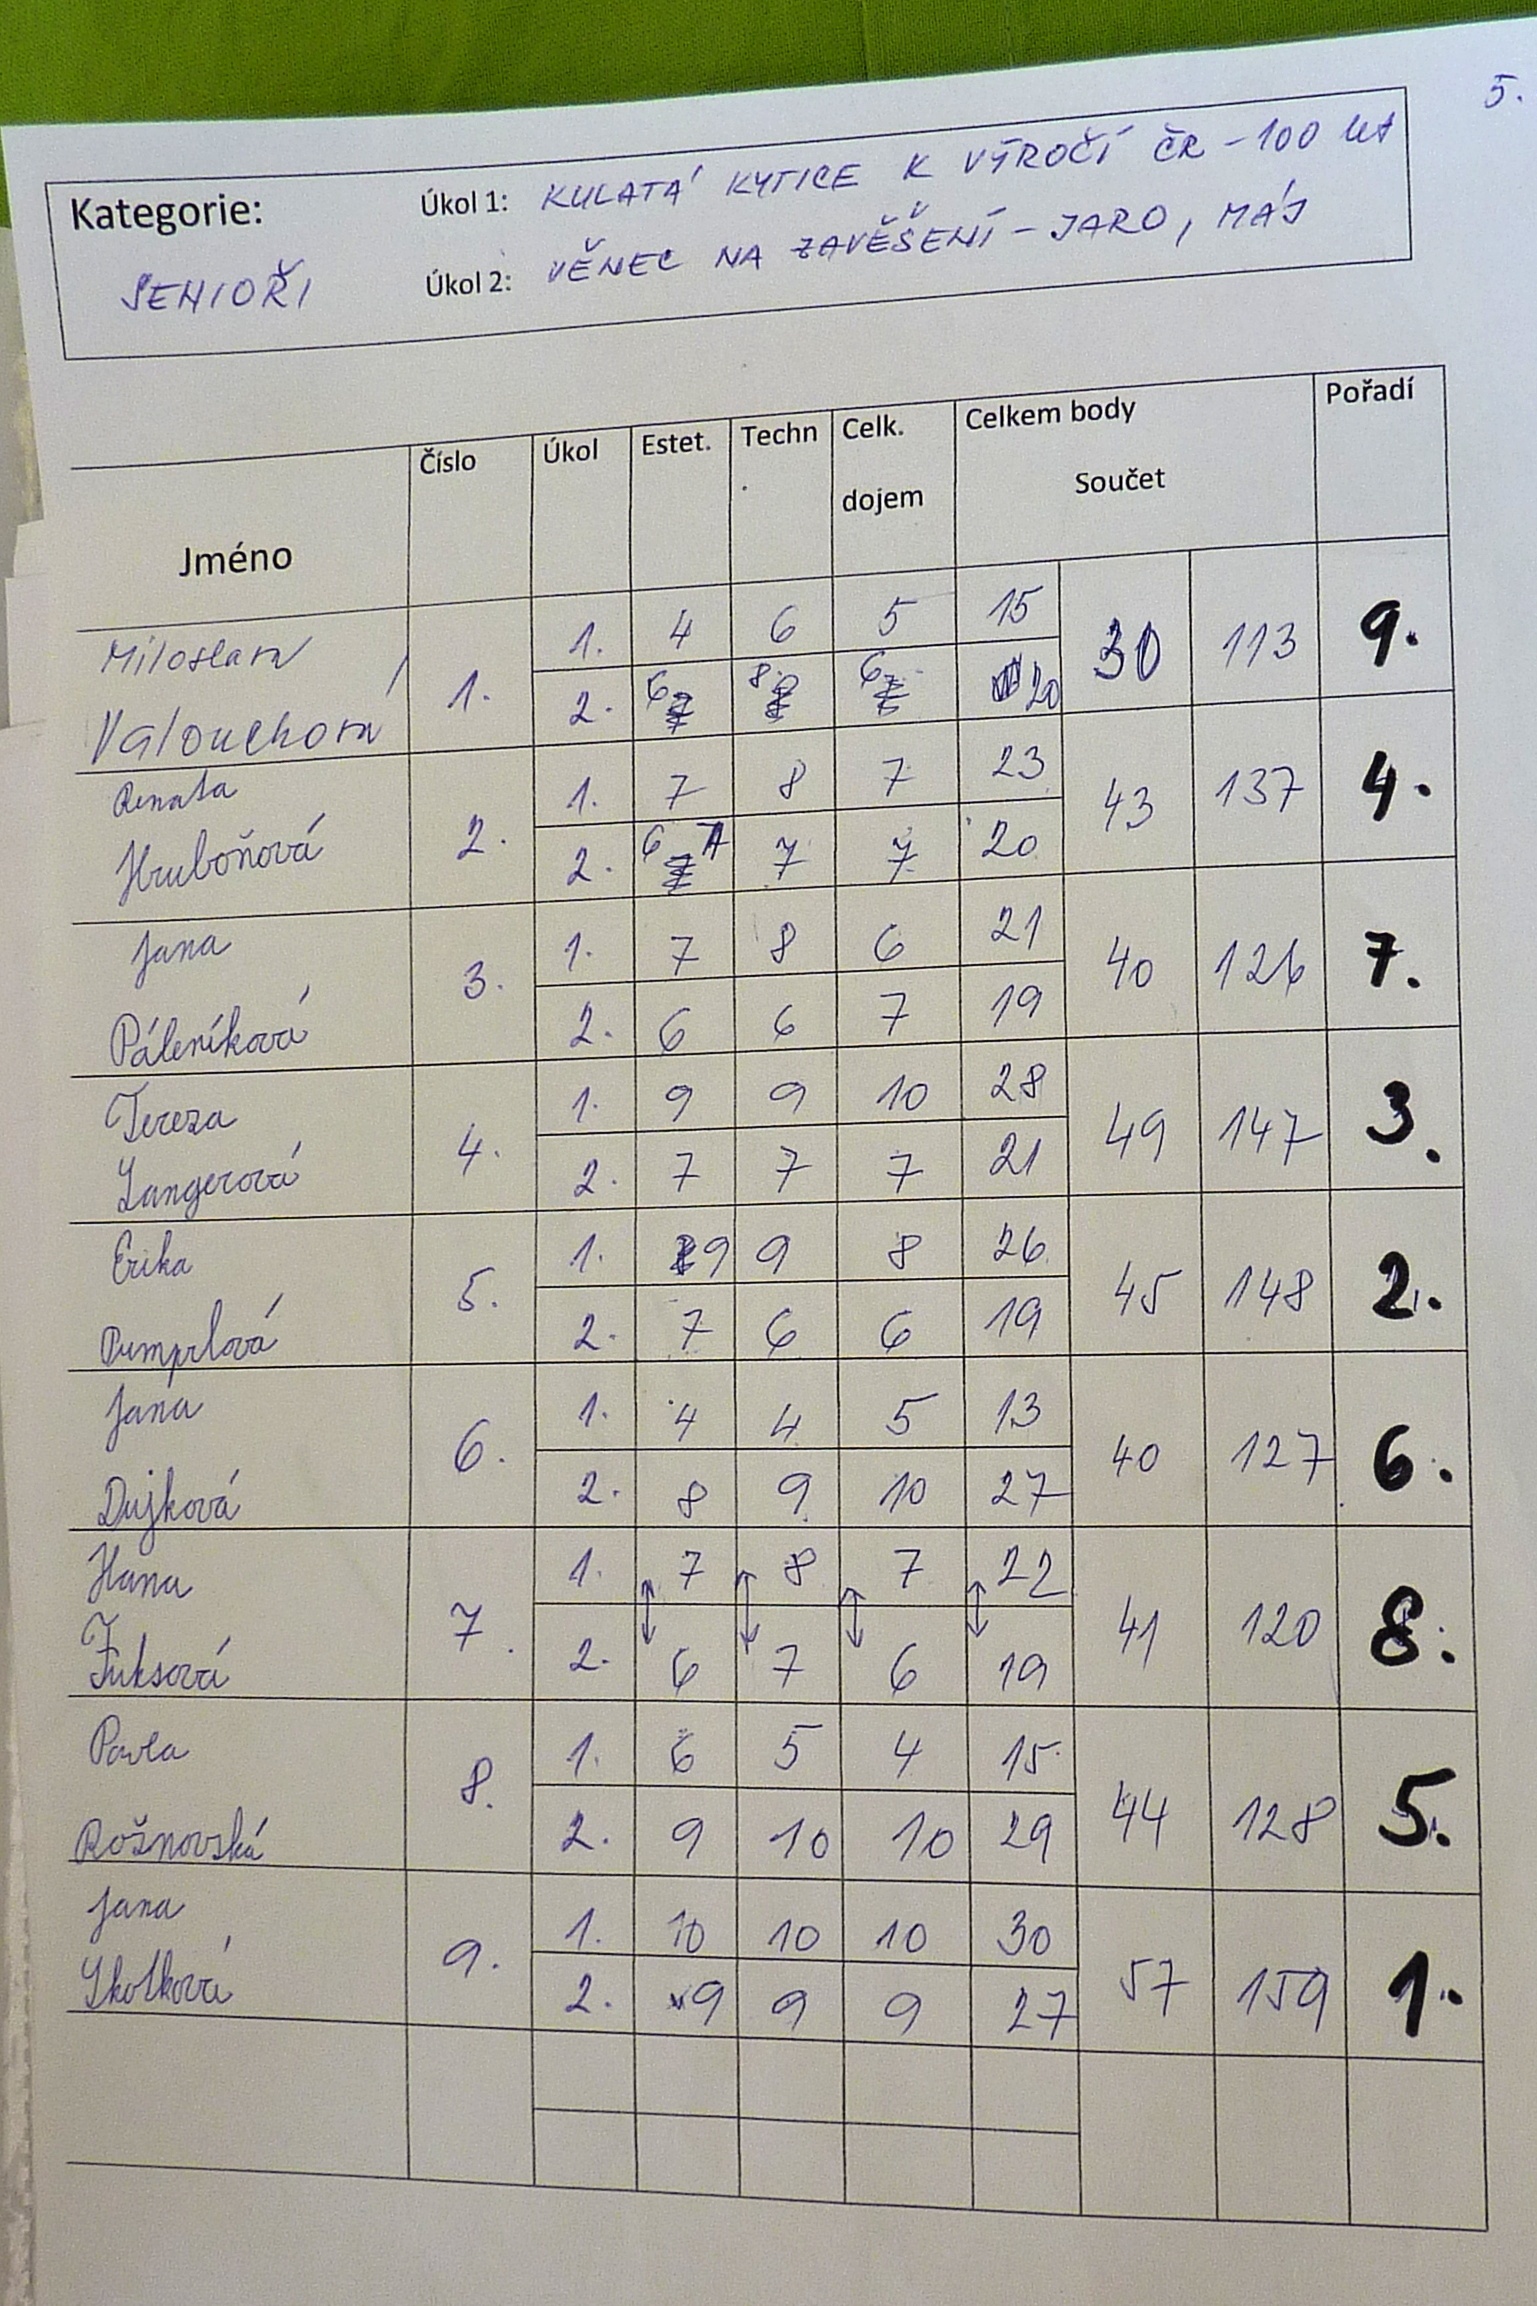 5.
Kategorie:
SENIOŘI
Úkol 1: KULATÁ KYTICE K VÝROČÍ ČR - 100 let
Úkol 2: VĚNEC NA ZAVĚŠENÍ - JARO, MÁJ
Jméno Číslo Úkol Estet. Techn. Celk. dojem Celkem body Součet Pořadí
Miloslava Valouchová 1. 1. 4 6 5 15 30 113 9.
2. 6 8 6 20
Renata Hruboňová 2. 1. 7 8 7 23 43 137 4.
2. 6 7 7 20
Jana Páleníková 3. 1. 7 8 6 21 40 126 7.
2. 6 6 7 19
Tereza Langerová 4. 1. 9 9 10 28 49 147 3.
2. 7 7 7 21
Erika Pumprlová 5. 1. 9 9 8 26 45 148 2.
2. 7 6 6 19
Jana Dujková 6. 1. 4 4 5 13 40 127 6.
2. 8 9 10 27
Hana Fuksová 7. 1. 7 8 7 22 41 120 8.
2. 6 7 6 19
Pavla Rožnovská 8. 1. 6 5 4 15 44 128 5.
2. 9 10 10 29
Jana Skotková 9. 1. 10 10 10 30 57 159 1.
2. 9 9 9 27